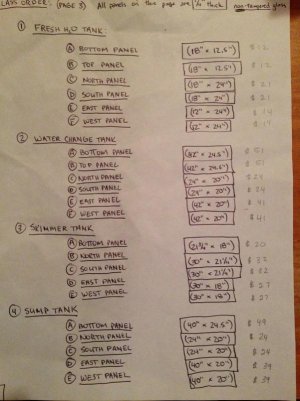 GLASS ORDER: (PAGE 3) All panels on this page are 3/8" thick non-tempered glass
① FRESH H2O TANK:
Ⓐ BOTTOM PANEL (18" x 12.5") $12
Ⓑ TOP PANEL (18" x 12.5") $12
Ⓒ NORTH PANEL (18" x 24") $21
Ⓓ SOUTH PANEL (18" x 24") $21
Ⓔ EAST PANEL (12" x 24") $14
Ⓕ WEST PANEL (12" x 24") $14
② WATER CHANGE TANK
Ⓐ BOTTOM PANEL (42" x 24.5") $51
Ⓑ TOP PANEL (42" x 24.5") $51
Ⓒ NORTH PANEL (24" x 20") $24
Ⓓ SOUTH PANEL (24" x 20") $24
Ⓔ EAST PANEL (42" x 20") $41
Ⓕ WEST PANEL (42" x 20") $41
③ SKIMMER TANK
Ⓐ BOTTOM PANEL 18") $20
Ⓑ NORTH PANEL (30" x $32
Ⓒ SOUTH PANEL (30" x $32
Ⓓ EAST PANEL (30" x 18") $27
Ⓔ WEST PANEL (30" x 18") $27
④ SUMP TANK
Ⓐ BOTTOM PANEL (40" x 24.5") $49
Ⓑ NORTH PANEL (24" x 20") $24
Ⓒ SOUTH PANEL (24" x 20") $24
Ⓓ EAST PANEL (40" x 20") $39
Ⓔ WEST PANEL (40" x 20") $39